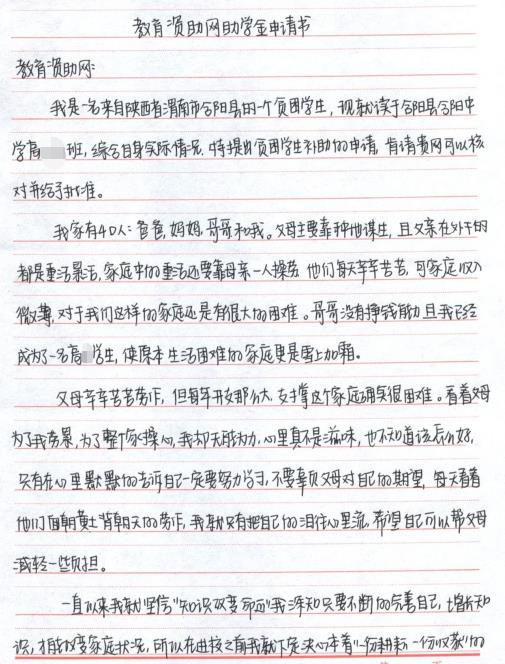 教育资助网助学金申请书
教育资助网:
我是一名来自陕西省渭南市合阳县的一个贫困学生，现就读于合阳县合阳中
学高 班，综合自身实际情况，特提出贫困学生补助的申请，肯请贵网可以核
对并给予批准。
我家有4口人：爸爸，妈妈，哥哥和我。父母主要靠种地谋生，且父亲在外干的
都是重活累活，家庭中的重活还要靠母亲一人操劳，他们每天辛辛苦苦，可家庭收入
微薄，对于我们这样的家庭还是有很大的困难。哥哥没有挣钱能力且我已经
成为了一名高 学生，使原本生活困难的家庭更是雪上加霜。
父母辛辛苦苦劳作，但每年开支那么大，支撑这个家庭确实很困难。看着父母
为了我劳累，为了整个家操心，我却无能为力，心里真不是滋味，也不知道该怎么办，
只有在心里默默的告诉自己一定要努力学习，不要辜负父母对自己的期望，每天看着
他们面朝黄土背朝天的劳作，我就只有把自己的泪往心里流，希望自己可以帮父母
减轻一些负担。
一直以来我就坚信“知识改变命运”我深知只要不断的完善自己，增长知
识，才能改变家庭状况，所以在进校之前我就下定决心本着“一份耕耘，一份收获”的